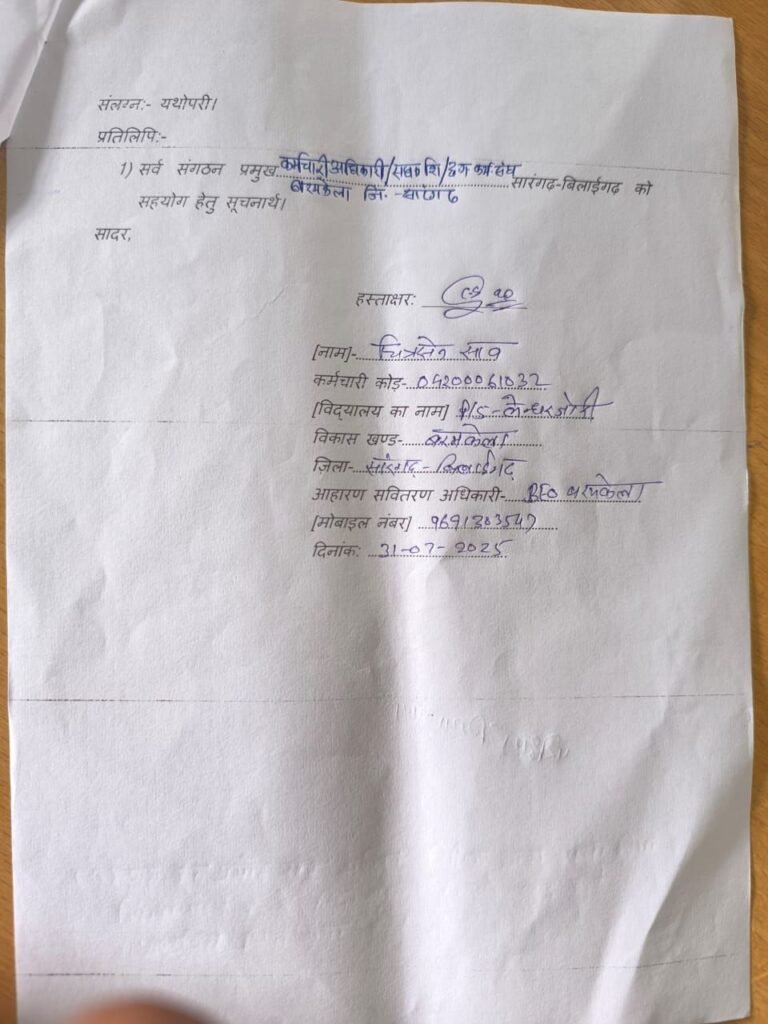 संलग्न:- यथोपरी।
प्रतिलिपि:-
1) सर्व संगठन प्रमुख. कर्मचारी अधिकारी/
बरमकेला जि. - सारंगढ़ सारंगढ़-बिलाईगढ़ को
सहयोग हेतु सूचनार्थ।
सादर,
हस्ताक्षर:
[नाम]- चित्रसेन साव
कर्मचारी कोड- 04200061032
[विद्यालय का नाम]
विकास खण्ड- बरमकेला
ज़िला- सारंगढ़ - बिलाईगढ़
आहारण सवितरण अधिकारी- BEO बरमकेला
[मोबाइल नंबर] 9691303547
दिनांक: 31-07-2025